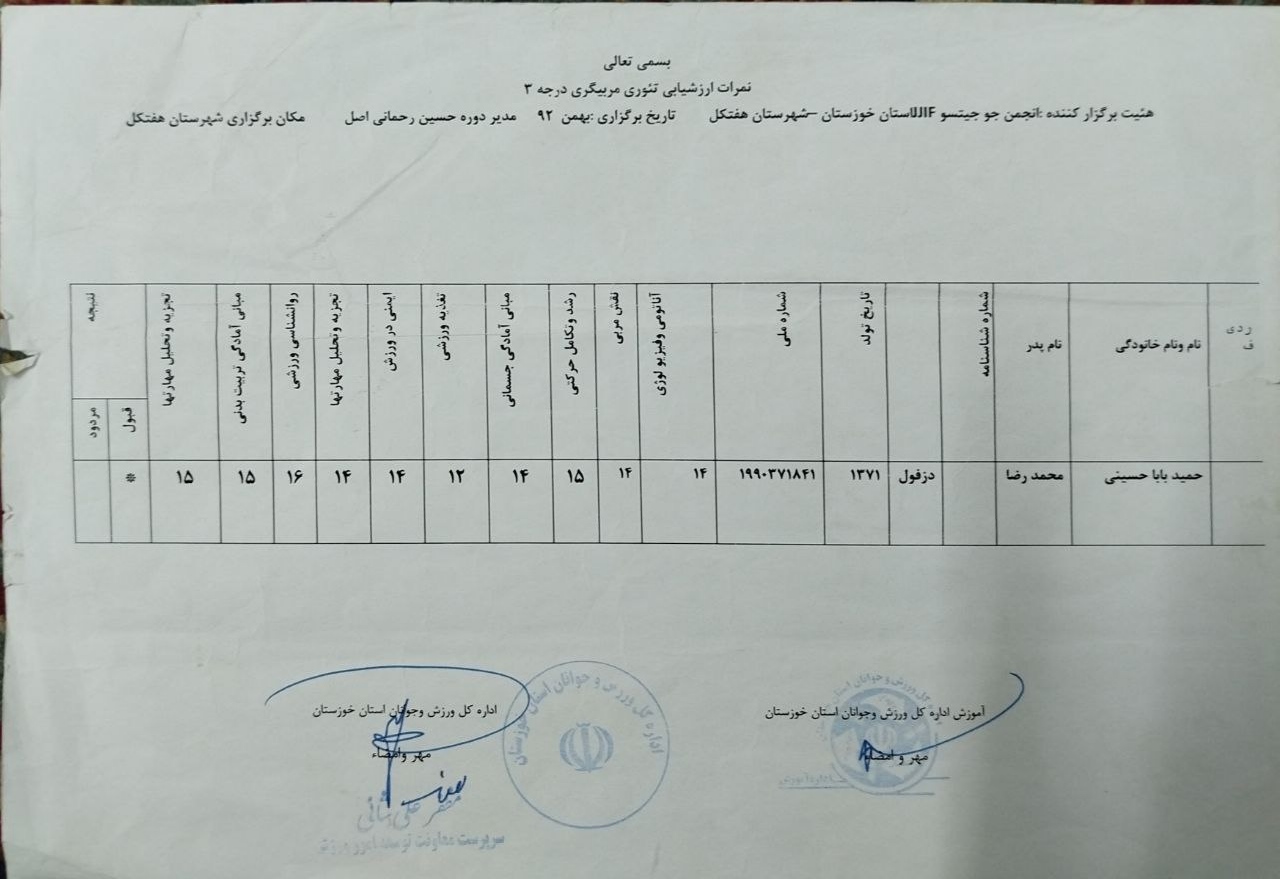 بسمی تعالی
نمرات ارزشیابی تئوری مربیگری درجه ۳
هئیت برگزار کننده :انجمن جو جیتسو JJIF استان خوزستان –شهرستان هفتکل تاریخ برگزاری :بهمن ۹۲ مدیر دوره حسین رحمانی اصل مکان برگزاری شهرستان هفتکل
ردی ف نام ونام خانودگی نام پدر شماره شناسنامه تاریخ تولد شماره ملی آناتومی وفیزیو لوژی نقش مربی رشد وتکامل حرکتی مبانی آمادگی جسمانی تغذیه ورزشی ایمنی در ورزش تجزیه وتحلیل مهارتها روانشناسی ورزشی مبانی آمادگی تربیت بدنی تجزیه وتحلیل مهارتها نتیجه
قبول مردود
حمید بابا حسینی محمد رضا دزفول ۱۳۷۱ ۱۹۹۰۳۷۱۸۴۱ ۱۴ ۱۴ ۱۵ ۱۴ ۱۲ ۱۴ ۱۴ ۱۶ ۱۵ ۱۵ *
آموزش اداره کل ورزش وجوانان استان خوزستان
مهر و امضاء
اداره کل ورزش وجوانان استان خوزستان
مهر وامضاء
اداره کل ورزش و جوانان استان خوزستان
سرپرست معاونت توسعه امور ورزش